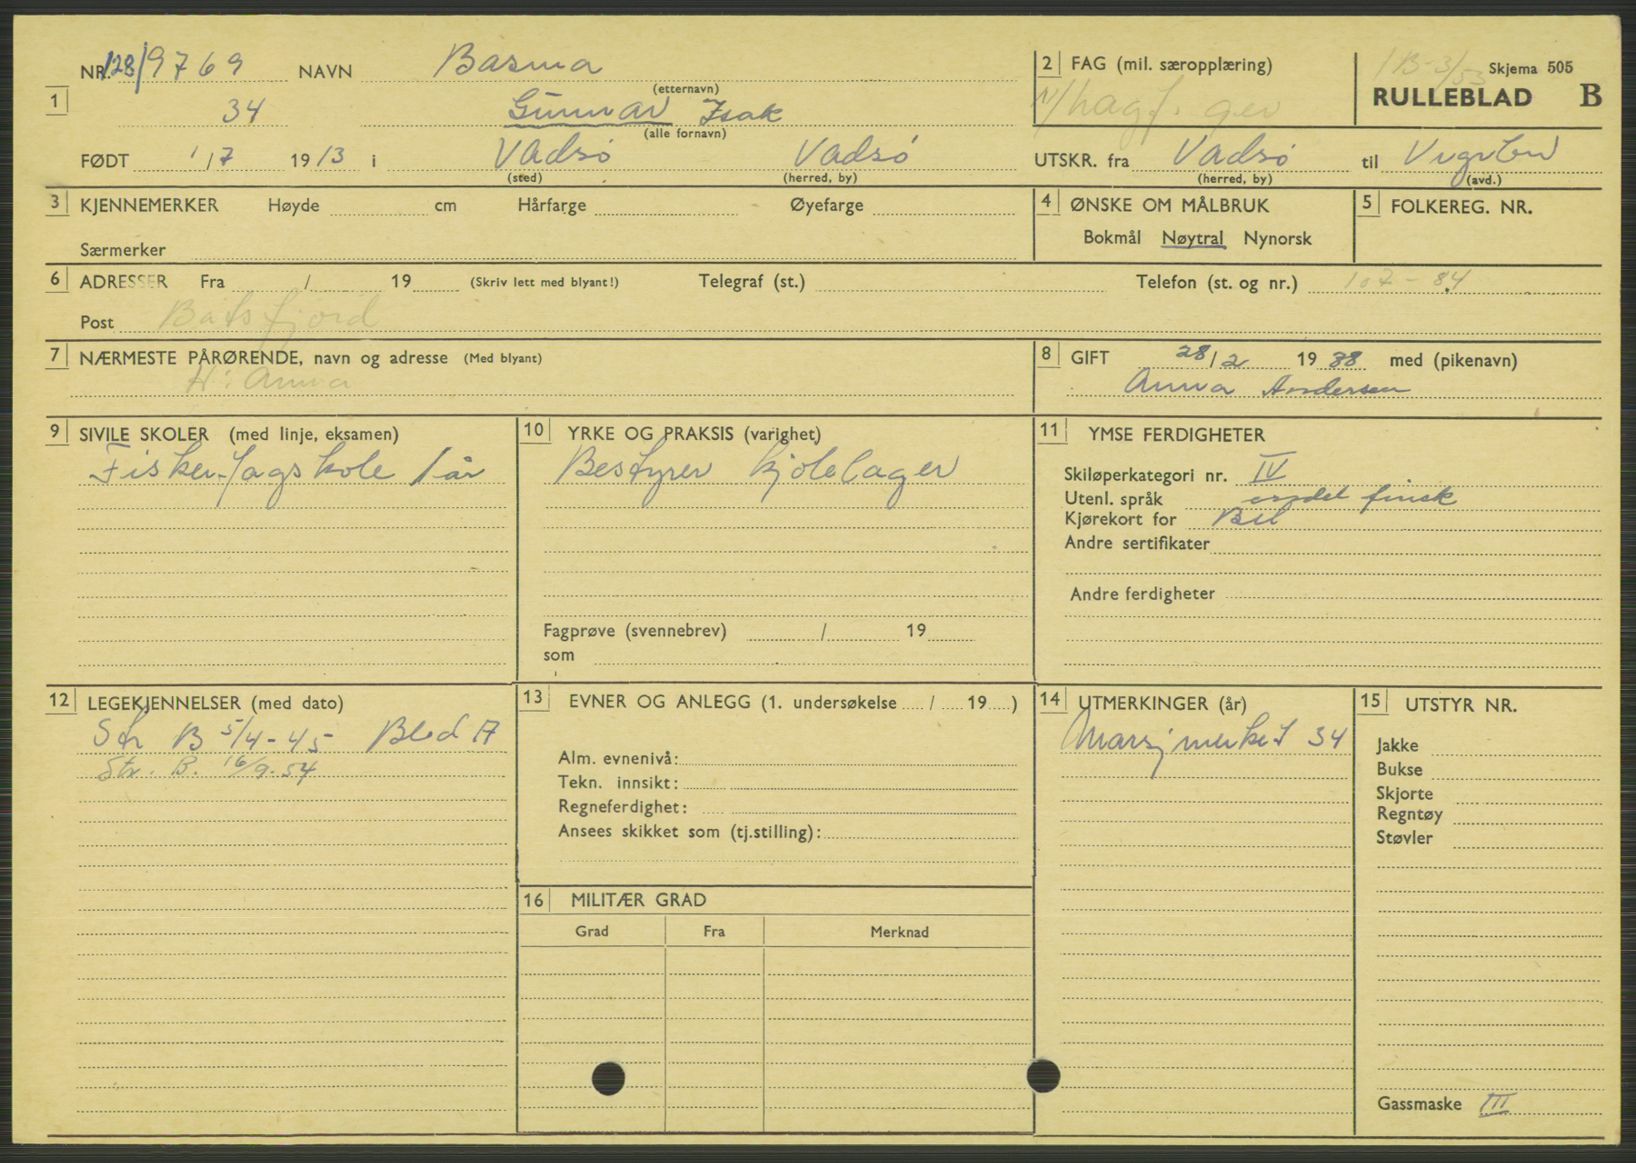 NR. 128/9769 NAVN Basma
(etternavn)
2 FAG (mil. særopplæring)
1B-3/53 Skjema 505
RULLEBLAD B
1 34 Gunnar Isak
(alle fornavn)
FØDT 1/7 1913 i Vadsø Vadsø UTSKR. fra Vadsø til
(sted) (herred, by) (herred, by) (avd.)
3 KJENNEMERKER Høyde cm Hårfarge Øyefarge
Særmerker
4 ØNSKE OM MÅLBRUK
Bokmål Nøytral Nynorsk
5 FOLKEREG. NR.
6 ADRESSER Fra / 19 (Skriv lett med blyant!) Telegraf (st.) Telefon (st. og nr.) 107-84
Post Båtsfjord
7 NÆRMESTE PÅRØRENDE, navn og adresse (Med blyant)
H: Anna
8 GIFT 28/2 1938 med (pikenavn)
Anna Andersen
9 SIVILE SKOLER (med linje, eksamen)
Fisker fagskole 1 år
10 YRKE OG PRAKSIS (varighet)
Bestyrer kjølelager
Fagprøve (svennebrev) / 19
som
11 YMSE FERDIGHETER
Skiløperkategori nr. IV
Utenl. språk finsk
Kjørekort for Bil
Andre sertifikater
Andre ferdigheter
12 LEGEKJENNELSER (med dato)
Str B 5/4-45 Blod A
Str. B. 16/9-54
13 EVNER OG ANLEGG (1. undersøkelse / 19 )
Alm. evnenivå:
Tekn. innsikt:
Regneferdighet:
Ansees skikket som (tj.stilling):
16 MILITÆR GRAD
Grad Fra Merknad
14 UTMERKINGER (år)
Marsjmerket 34
15 UTSTYR NR.
Jakke
Bukse
Skjorte
Regntøy
Støvler
Gassmaske III